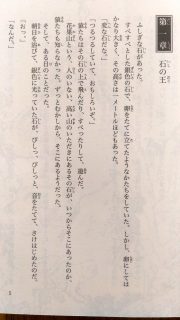 第一章 石の王
ふしぎな石があった。
すべすべした銀色の卵を立てたようなかたちをしていた。しかし、卵にしては
かなり大きく、その高さは一メートルほどもあった。
「変な石だな。」
「つるつるしていて、おもしろいぞ。」
猿たちはその石の上で飛んだり、すべったりして、遊んだ。
花果山という、人里のない、高い山のいただきにあるその石が、いつからそこにあったのか、
猿たちも知らなかった。ずっとむかしから、そこにあるようだった。
そして、ある日のことだった。
朝日を浴びて、銀色に光っていた石が、ぴしっ、ぴしっと、音をたてて、さけはじめたのだ。
「おっ。」
「なんだ。」
5